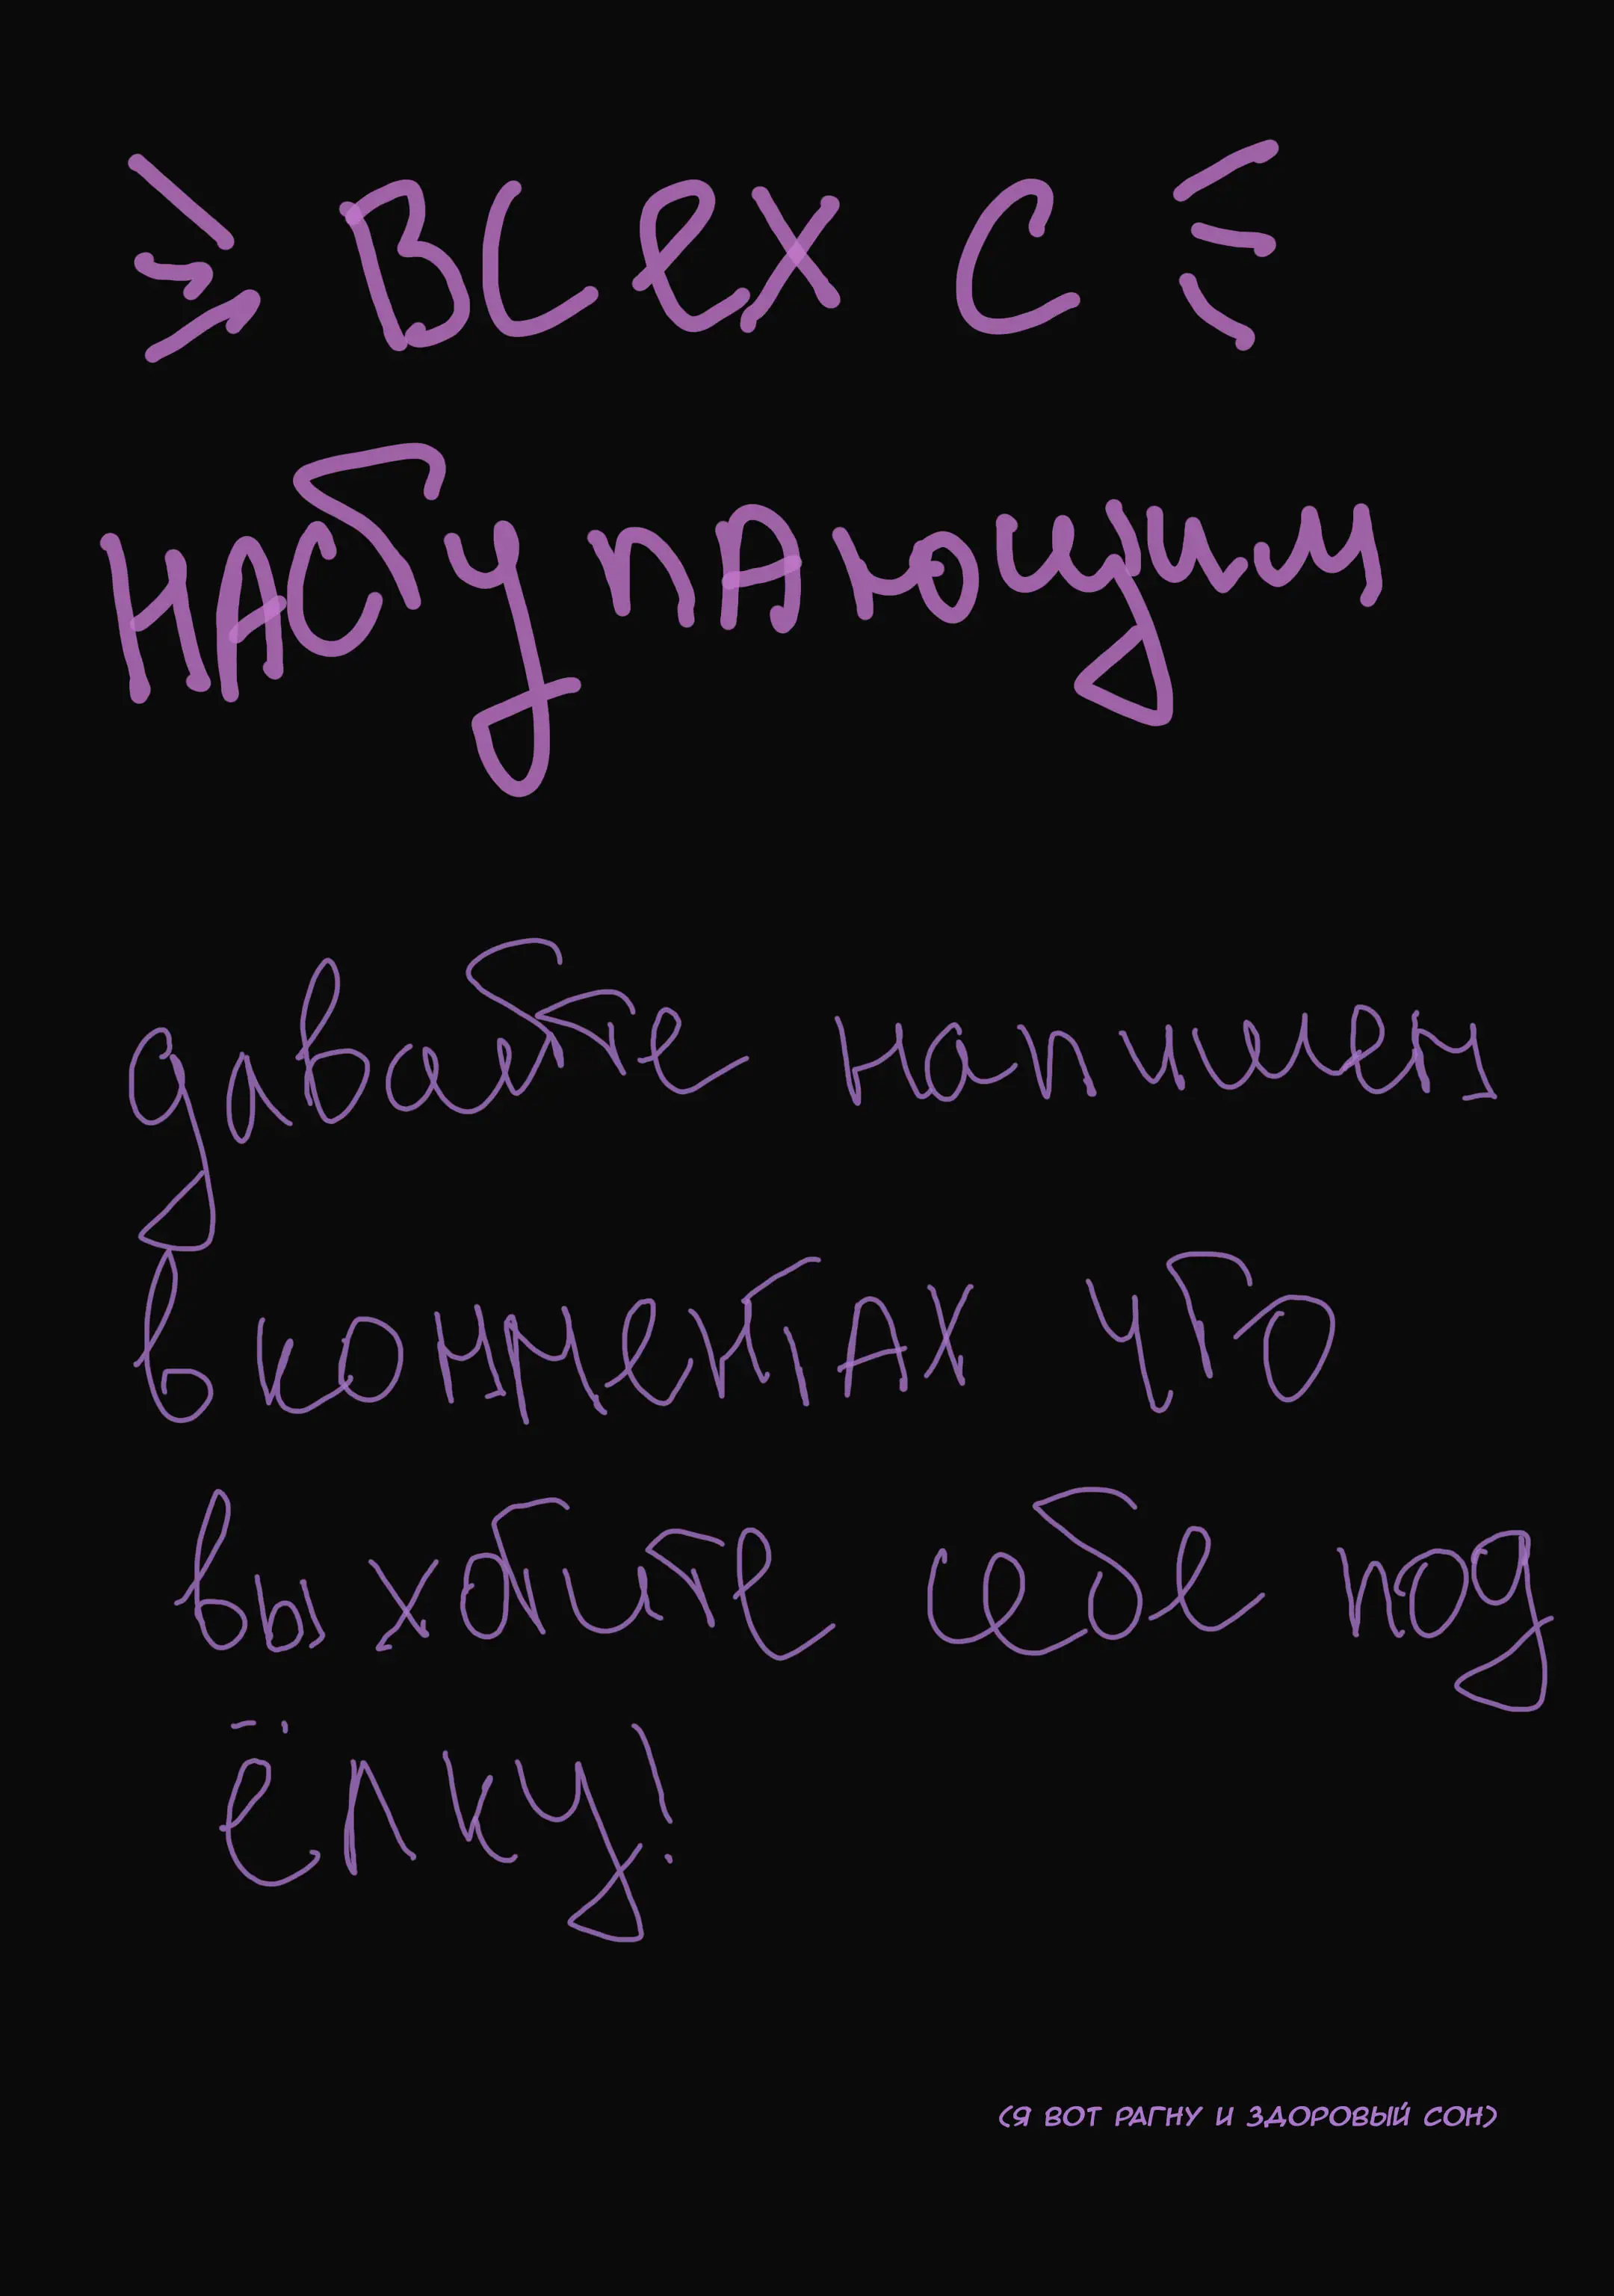 ВСЕХ С
НАСТУПАЮЩИМ
давайте напишем
в комментах что
вы хотите себе под
ёлку!
(Я ВОТ РАГНУ И ЗДОРОВЫЙ СОН)